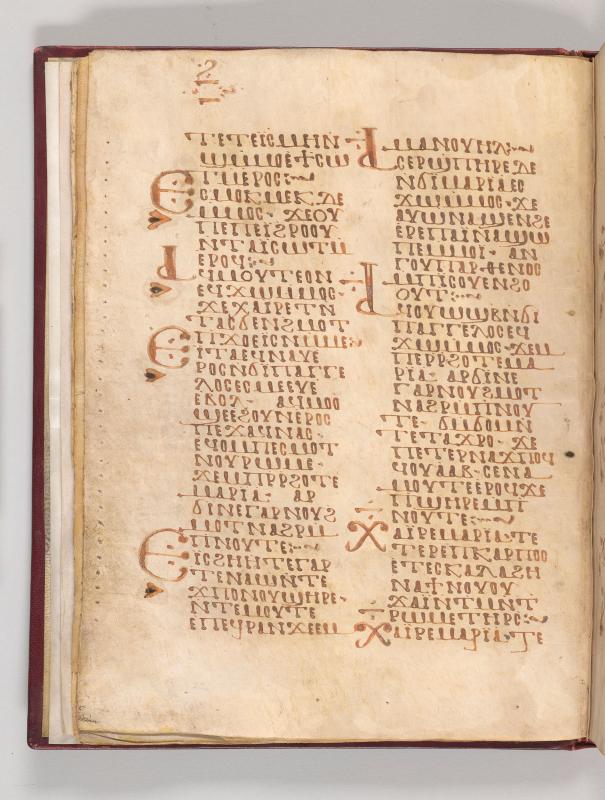 ⲧⲉⲧⲉⲓⲥⲙⲏⲛ
ⲙⲙⲟⲉϯⲥⲱ
ⲧⲙⲉⲣⲟⲥ:
ⲉⲥⲙⲟⲕⲙⲉⲕ ⲇⲉ
ⲙⲙⲟⲥ· ϫⲉⲟⲩ
ⲡⲉⲡⲉⲓϩⲣⲟⲟⲩ
ⲛⲧⲁⲓⲥⲱⲧⲙ
ⲉⲣⲟϥ:
ⲁϥⲙⲟⲩⲧⲉⲟⲛ
ⲉϥϫⲱⲙⲙⲟⲥ·
ϫⲉⲭⲁⲓⲣⲉⲧⲛ
ⲧⲁⲥϭⲉⲛϩⲙⲟⲧ
ⲡϫⲟⲉⲓⲥⲛⲙⲙⲉ:
ⲉⲓⲧⲁⲉϥⲛⲁⲩⲉ
ⲣⲟⲥⲛϭⲓⲡⲁⲅⲅⲉ
ⲗⲟⲥⲉⲥⲙⲉⲉⲩⲉ
ⲉⲃⲟⲗ· ⲁϥⲙⲟⲟ
ϣⲉⲉϩⲟⲩⲛⲉⲣⲟⲥ
ⲡⲉϫⲁϥⲛⲁⲥ·
ⲉϥⲟⲙⲡⲉⲥⲙⲟⲧ
ⲛⲟⲩⲣⲱⲙⲉ·
ϫⲉⲙⲡⲣⲣϩⲟⲧⲉ
ⲙⲁⲣⲓⲁ· ⲁⲣ
ϭⲓⲛⲉⲅⲁⲣⲛⲟⲩϩ
ⲙⲟⲧⲛⲁϩⲣⲙ
ⲡⲛⲟⲩⲧⲉ:
ⲉⲓⲥϩⲏⲏⲧⲉⲅⲁⲣ
ⲧⲉⲛⲁⲱⲛⲧⲉ
ϫⲡⲟⲛⲟⲩϣⲏⲣⲉ·
ⲛⲧⲉⲙⲟⲩⲧⲉ
ⲉⲡⲉϥⲣⲁⲛϫⲉⲉⲙ
ⲙⲁⲛⲟⲩⲏⲗ:
ⲁⲥⲉⲣϣⲡⲏⲣⲉ ⲇⲉ
ⲛϭⲓⲙⲁⲣⲓⲁⲉⲥ
ϫⲱⲙⲙⲟⲥ· ϫⲉ
ⲁⲩⲱⲛⲁϣⲉⲛϩⲉ
ⲉⲣⲉⲡⲁⲓⲛⲁϣⲱ
ⲡⲉⲙⲙⲟⲓ· ⲁⲛ
ⲅⲟⲩⲡⲁⲣⲑⲉⲛⲟⲥ
ⲙⲡⲓⲥⲟⲩⲉⲛϩⲟ
ⲟⲩⲧ:
ⲁϥⲟⲩⲱϣⲃⲛϭⲓ
ⲡⲁⲅⲅⲉⲗⲟⲥⲉϥ
ϫⲱⲙⲙⲟⲥϫⲉⲙ
ⲡⲉⲣⲣϩⲟⲧⲉⲙⲁ
ⲣⲓⲁ· ⲁⲣϭⲓⲛⲉ
ⲅⲁⲣⲛⲟⲩϩⲙⲟⲧ
ⲛⲁϩⲣⲙⲡⲛⲟⲩ
ⲧⲉ· ϭⲙϭⲟⲙⲛ
ⲧⲉⲧⲁϫⲣⲟ· ϫⲉ
ⲡⲉⲧⲉⲣⲛⲁϫⲡⲟϥ
ϥⲟⲩⲁⲁⲃ· ⲥⲉⲛⲁ
ⲙⲟⲩⲧⲉⲉⲣⲟϥϫⲉ
ⲡϣⲏⲣⲉⲙⲡ
ⲛⲟⲩⲧⲉ:
ⲭⲁⲓⲣⲉⲙⲁⲣⲓⲁ· ⲧⲉ
ⲧⲉⲣⲉⲡⲕⲁⲣⲡⲟⲥ
ⲉⲧⲉⲥⲕⲁⲗⲁϩⲏ
ⲛⲁϯⲛⲟⲩⲟⲩ
ϫⲁⲓⲛⲧⲙⲛⲧ
ⲣⲱⲙⲉⲧⲏⲣⲥ:
ⲭⲁⲓⲣⲉⲙⲁⲣⲓⲁ· ⲧⲉ